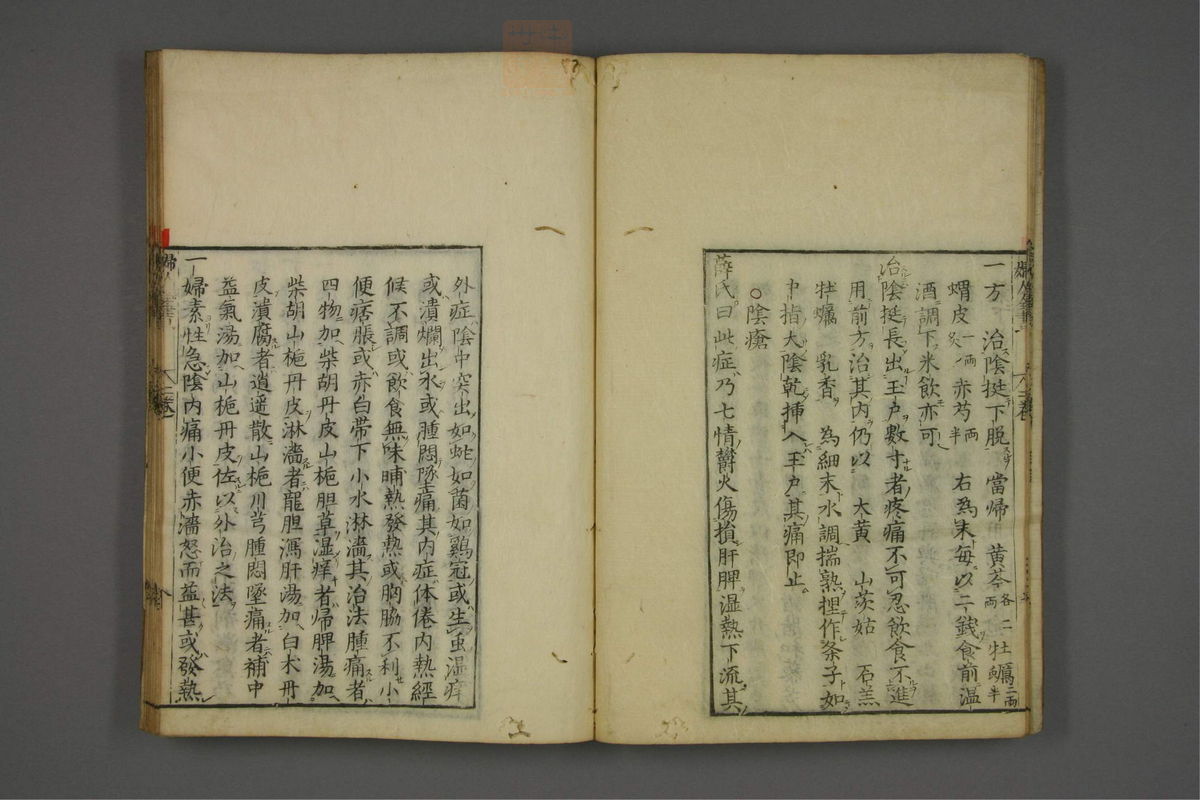 一方 治陰挺下脱 當帰 黄芩各二両 牡蠣二両半
蝟皮一両炙 赤芍両半 右為末毎以二錢食前温
酒調下米飲亦可
治陰挺長出玉戸數寸者疼痛不可忍飲食不進
用前方治其内仍以 大黄 山茨姑 石羔
牡蠣 乳香 為細末水調揣熟捏作条子如
中指大陰乾挿入玉戸其痛即止
○陰瘡
薛氏曰此症乃七情欝火傷損肝脾湿熱下流其
外症陰中突出如蛇如菌如鷄冠或生虫湿痒
或潰爛出水或腫悶墜痛其内症体倦内熱經
候不調或飲食無味晡熱發熱或胸脇不利小
便痞脹或赤白帯下小水淋濇其治法腫痛者
四物加柴胡丹皮山梔胆草湿痒者帰脾湯加
柴胡山梔丹皮淋濇者龍胆瀉肝湯加白木丹
皮潰腐者逍遥散山梔川芎腫悶墜痛者補中
益氣湯加山梔丹皮佐以外治之法
一婦素性急陰内痛小便赤濇怒而益甚或發熱